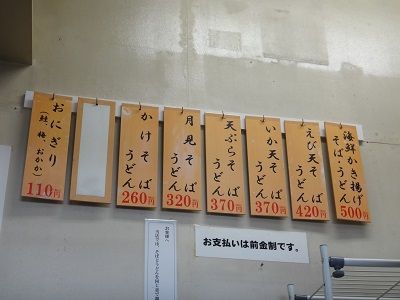 海鮮かき揚げ
そば・うどん
500円
えび天そば
うどん
420円
いか天そば
うどん
370円
天ぷらそば
うどん
370円
月見そば
うどん
320円
かけそば
うどん
260円
おにぎり
(鮭、梅、おかか)
110円
お支払いは前金制です。
お客様へ